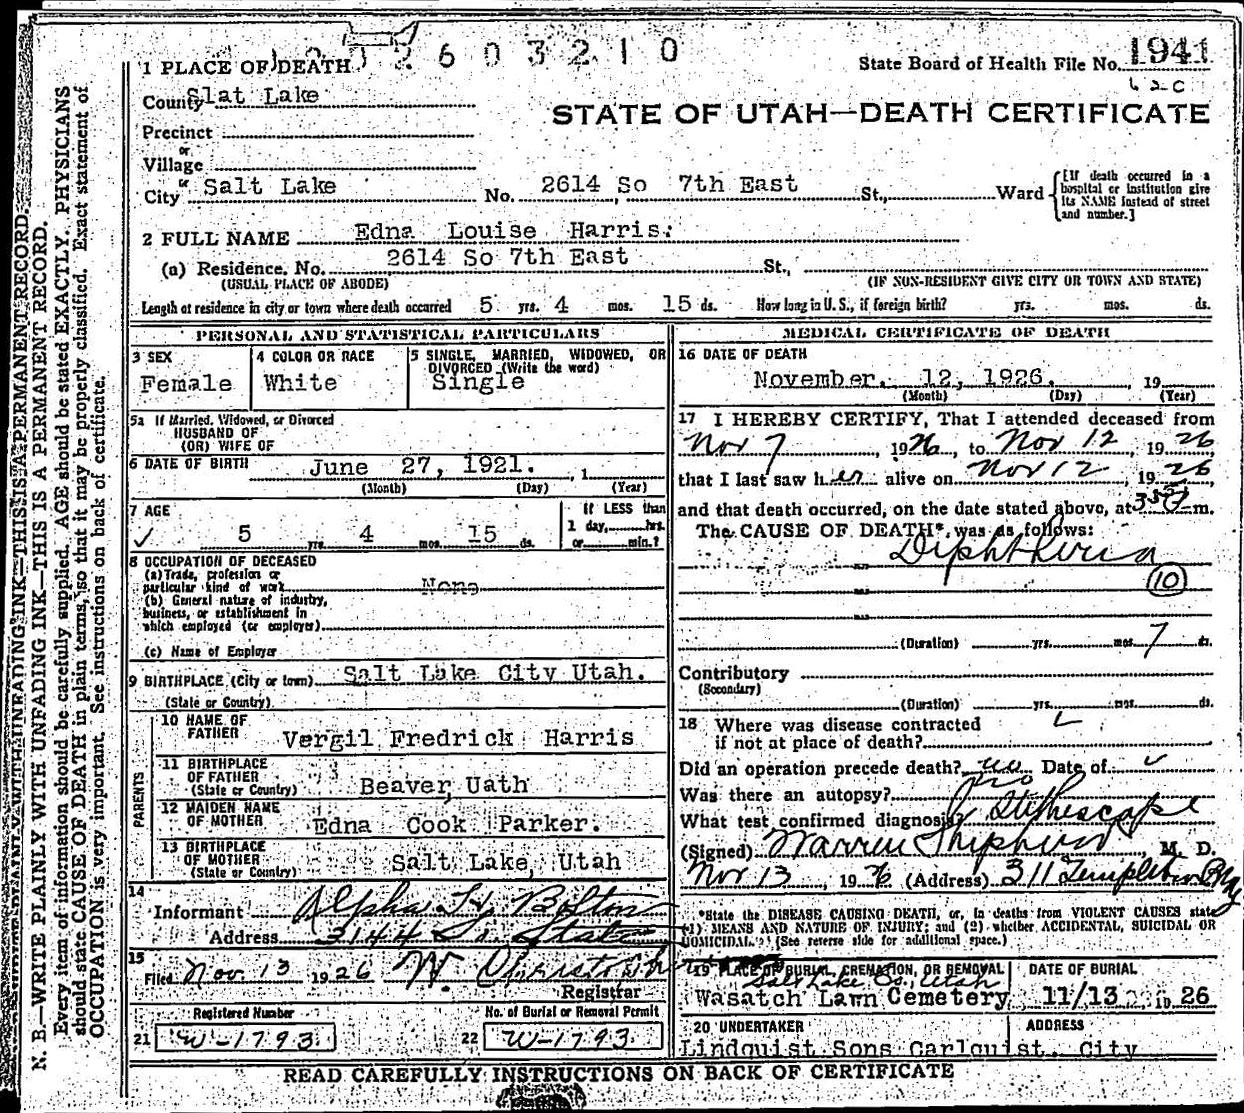 2603210
State Board of Health File No. 1941
62C
1 PLACE OF DEATH
County Slat Lake
STATE OF UTAH—DEATH CERTIFICATE
Precinct
or
Village
or
City Salt Lake No. 2614 So 7th East St., Ward
[If death occurred in a hospital or institution give its NAME instead of street and number.]
2 FULL NAME Edna Louise Harris.
(a) Residence. No. 2614 So 7th East St.,
(USUAL PLACE OF ABODE) (IF NON-RESIDENT GIVE CITY OR TOWN AND STATE)
Length of residence in city or town where death occurred 5 yrs. 4 mos. 15 ds. How long in U. S., if foreign birth? yrs. mos. ds.
PERSONAL AND STATISTICAL PARTICULARS
3 SEX
Female
4 COLOR OR RACE
White
5 SINGLE, MARRIED, WIDOWED, OR
DIVORCED (Write the word)
Single
5a If Married, Widowed, or Divorced
HUSBAND OF
(OR) WIFE OF
6 DATE OF BIRTH June 27, 1921. , 1
(Month) (Day) (Year)
7 AGE
5 yrs. 4 mos. 15 ds.
If LESS than
1 day, hrs.
or min.?
8 OCCUPATION OF DECEASED
(a) Trade, profession or
particular kind of work None
(b) General nature of industry,
business, or establishment in
which employed (or employer)
(c) Name of Employer
9 BIRTHPLACE (City or town) Salt Lake City Utah.
(State or Country)
PARENTS
10 NAME OF
FATHER Vergil Fredrick Harris
11 BIRTHPLACE
OF FATHER
(State or Country) Beaver Uath
12 MAIDEN NAME
OF MOTHER Edna Cook Parker.
13 BIRTHPLACE
OF MOTHER
(State or Country) Salt Lake, Utah
14
Informant Alpha H. Bolton
Address 3144 So. State
15
Filed Nov. 13 1926
Registrar
Registered Number
21 W-1793.
No. of Burial or Removal Permit
22 W-1793.
MEDICAL CERTIFICATE OF DEATH
16 DATE OF DEATH
November. 12, 1926. , 19
(Month) (Day) (Year)
17 I HEREBY CERTIFY, That I attended deceased from
Nov 7, 1926, to Nov 12, 1926
that I last saw her alive on Nov 12, 1926,
and that death occurred, on the date stated above, at m.
The CAUSE OF DEATH* was as follows:
Diphtheria
10
(Duration) yrs. mos. 7 ds.
Contributory
(Secondary)
(Duration) yrs. mos. ds.
18 Where was disease contracted
if not at place of death?
Did an operation precede death? no Date of
Was there an autopsy? no
What test confirmed diagnosis? Stethescope
(Signed) Warren Shepherd, M. D.
Nov 13, 1926 (Address) 311 Templeton Bldg
*State the DISEASE CAUSING DEATH, or, in deaths from VIOLENT CAUSES state
(1) MEANS AND NATURE OF INJURY; and (2) whether ACCIDENTAL, SUICIDAL OR
HOMICIDAL. (See reverse side for additional space.)
19 PLACE OF BURIAL, CREMATION, OR REMOVAL
Salt Lake Co., Utah
Wasatch Lawn Cemetery
DATE OF BURIAL
11/13 26
20 UNDERTAKER
Lindquist Sons Carlquist. City
ADDRESS
READ CAREFULLY INSTRUCTIONS ON BACK OF CERTIFICATE
N. B.—WRITE PLAINLY WITH UNFADING INK—THIS IS A PERMANENT RECORD.
Every item of information should be carefully supplied. AGE should be stated EXACTLY. PHYSICIANS
should state CAUSE OF DEATH in plain terms, so that it may be properly classified. Exact statement of
OCCUPATION is very important. See instructions on back of certificate.